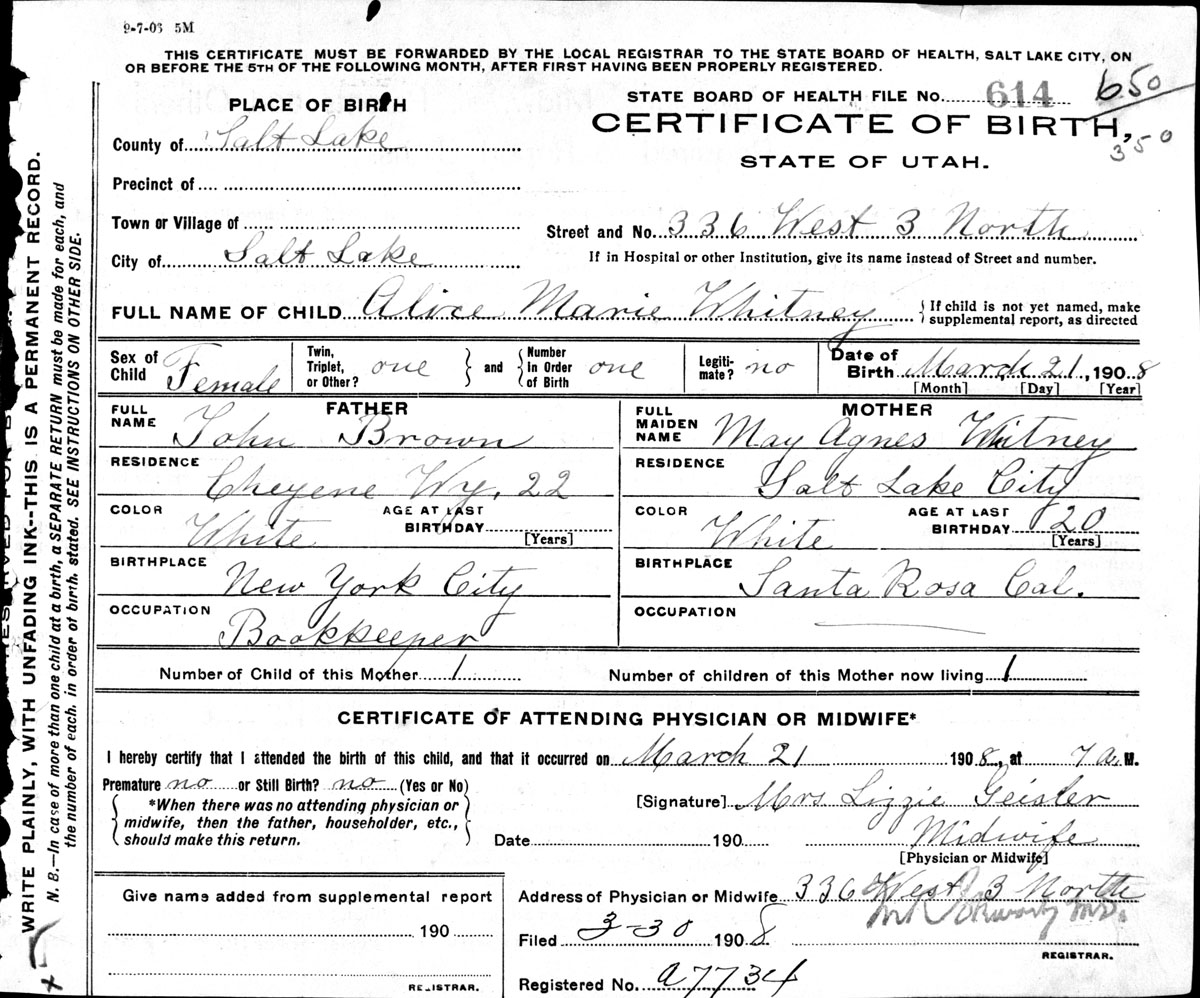 9-7-06 5M
THIS CERTIFICATE MUST BE FORWARDED BY THE LOCAL REGISTRAR TO THE STATE BOARD OF HEALTH, SALT LAKE CITY, ON
OR BEFORE THE 5TH OF THE FOLLOWING MONTH, AFTER FIRST HAVING BEEN PROPERLY REGISTERED.
PLACE OF BIRTH
STATE BOARD OF HEALTH FILE No. 614 650
CERTIFICATE OF BIRTH,
350
STATE OF UTAH.
County of Salt Lake
Precinct of
Town or Village of
Street and No. 336 West 3 North
City of Salt Lake
If in Hospital or other Institution, give its name instead of Street and number.
FULL NAME OF CHILD Alice Marie Whitney
If child is not yet named, make
supplemental report, as directed
Sex of Child Female
Twin, Triplet, or Other? one
and
Number in Order of Birth one
Legiti-mate? no
Date of Birth March 21, 1908
[Month] [Day] [Year]
FATHER
FULL NAME John Brown
RESIDENCE Cheyene Wy. 22
COLOR White
AGE AT LAST BIRTHDAY
[Years]
BIRTHPLACE New York City
OCCUPATION Bookkeeper
MOTHER
FULL MAIDEN NAME May Agnes Whitney
RESIDENCE Salt Lake City
COLOR White
AGE AT LAST BIRTHDAY 20
[Years]
BIRTHPLACE Santa Rosa Cal.
OCCUPATION
Number of Child of this Mother 1
Number of children of this Mother now living 1
CERTIFICATE OF ATTENDING PHYSICIAN OR MIDWIFE*
I hereby certify that I attended the birth of this child, and that it occurred on March 21 1908, at 7 a. M.
Premature no or Still Birth? no (Yes or No)
*When there was no attending physician or
midwife, then the father, householder, etc.,
should make this return.
[Signature] Mrs Lizzie Geisler
Date 190
Midwife
[Physician or Midwife]
Give name added from supplemental report
190
REGISTRAR.
Address of Physician or Midwife 336 West 3 North
Filed 3-30 1908
M.D.
REGISTRAR.
Registered No. a7734
WRITE PLAINLY, WITH UNFADING INK--THIS IS A PERMANENT RECORD.
N. B.—In case of more than one child at a birth, a SEPARATE RETURN must be made for each, and
the number of each, in order of birth, stated. SEE INSTRUCTIONS ON OTHER SIDE.